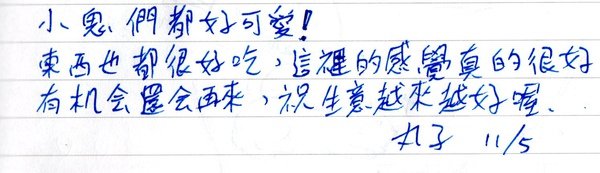 小鬼們都好可愛!
東西也都很好吃，這裡的感覺真的很好
有机会還会再來，祝生意越來越好喔、
丸子 11/5